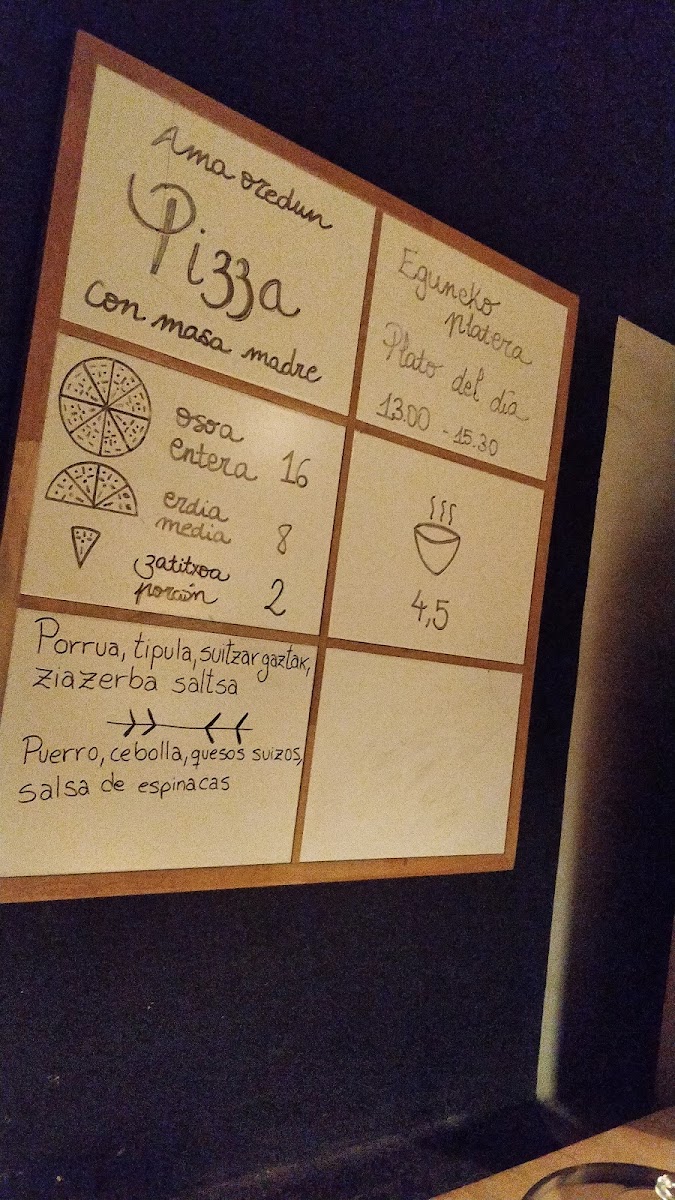 Ama oredun
Pizza
con masa madre
osoa
entera 16
erdia
media 8
zatitxoa
porción 2
Porrua, tipula, suitzar gaztak,
ziazerba saltsa
Puerro, cebolla, quesos suizos,
salsa de espinacas
Eguneko
platera
Plato del día
13.00 - 15.30
4,5